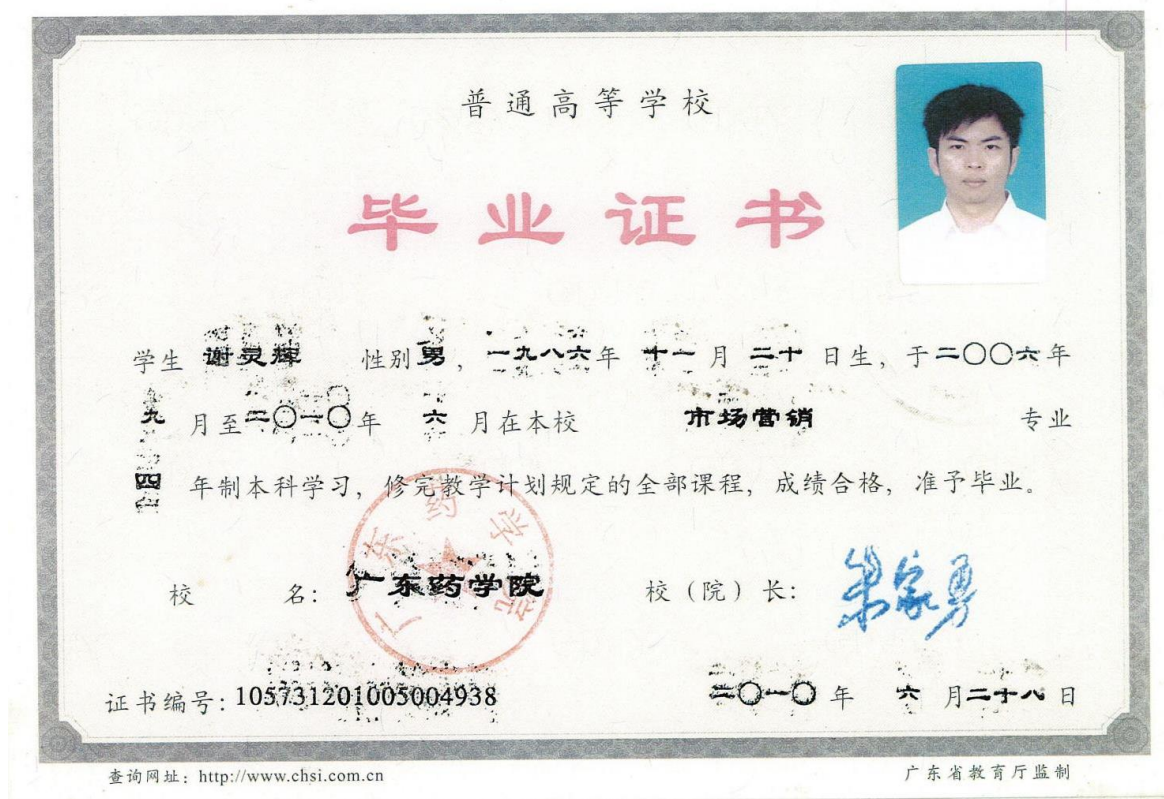 普通高等学校
毕业证书
学生 谢灵辉 性别 男，一九八六年 十一月 二十 日生，于二〇〇六年
九 月至二〇一〇年 六 月在本校 市场营销 专业
四 年制本科学习，修完教学计划规定的全部课程，成绩合格，准予毕业。
校 名：广东药学院 校（院）长：朱家勇
广东药学院
证书编号：105731201005004938 二〇一〇 年 六 月二十八日
查询网址：http://www.chsi.com.cn 广东省教育厅监制